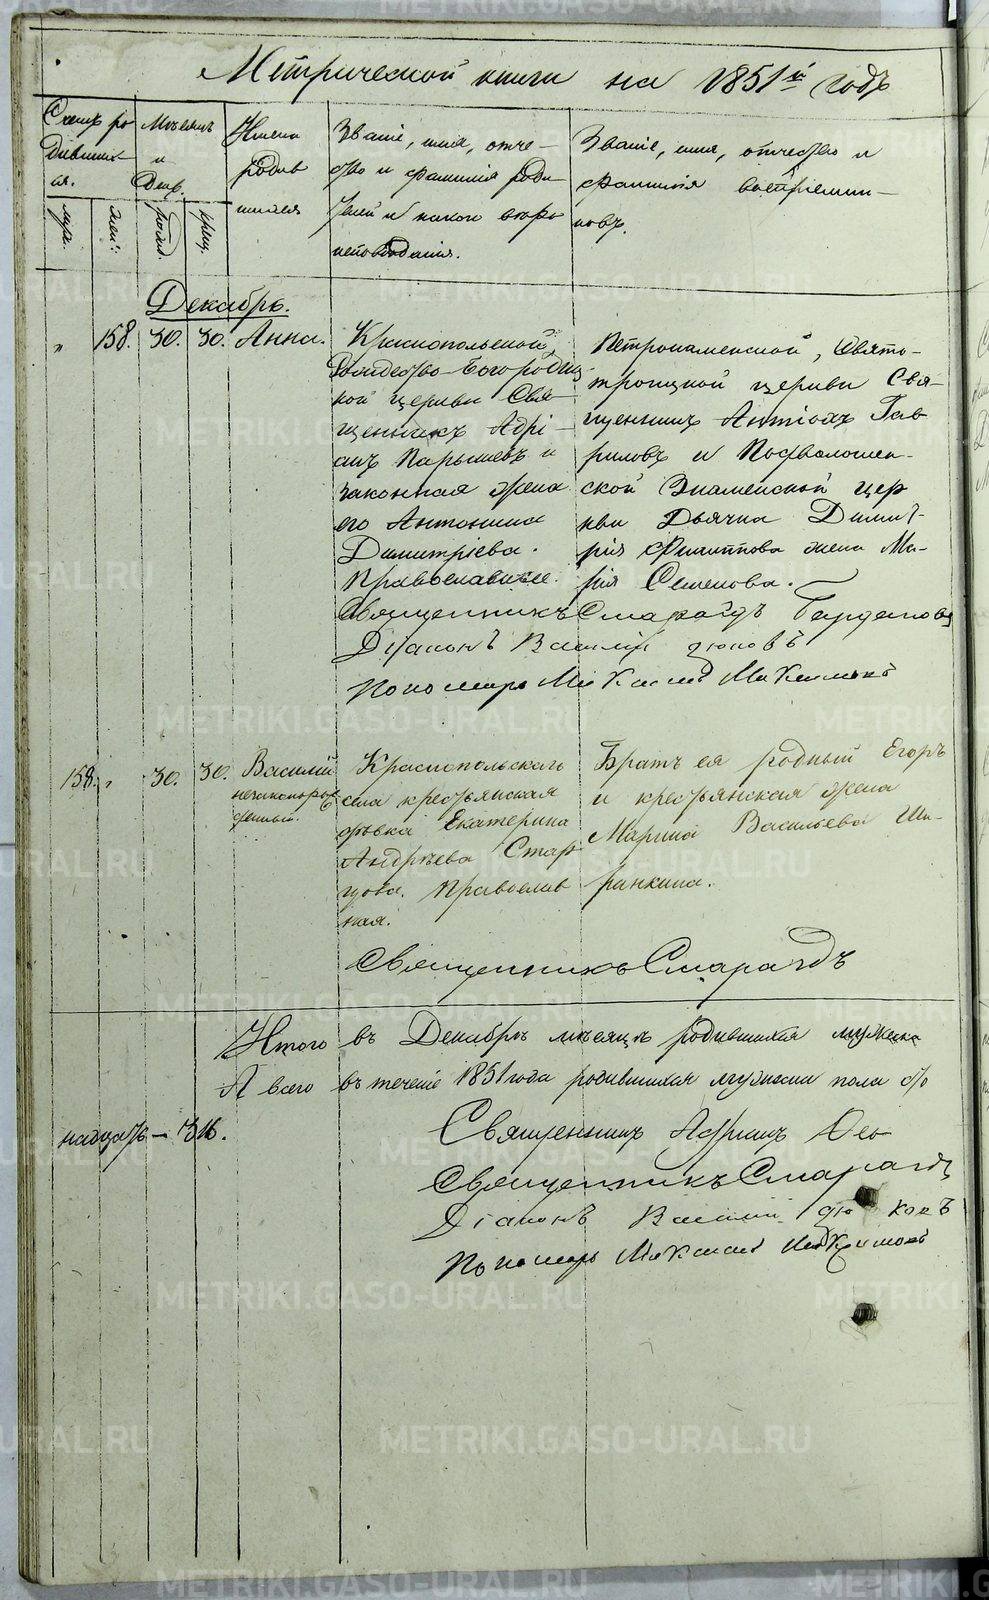 Метрической книги на 1851й годъ
Счетъ ро
дивших
ся.
муж.
жен.
Месяцъ
и
День.
рожд.
крещ.
Имена
родив
шихся
Званіе, имя, отче-
ство и фамилія роди
телей и какого веро
исповеданія.
Званіе, имя, отчество и
фамилія воспріемни-
ковъ.
Декабрь.
" 158. 30. 30. Анна.
Краснопольской,
Рождество-Богородиц
кой церкви Свя
щенникъ Адрі-
анъ Парышевъ и
законная жена
его Антонина
Димитріева.
Православные.
Петрокаменской, Свято-
троицкой церкви Свя-
щенникъ Антіохъ Гав
риловъ и
ской Знаменской цер
кви Дьячка Димит-
рія Филиппова жена Ма-
рія Семенова.
Священникъ Смарагдъ
Діаконъ Василій
Пономарь
158. " 30. 30. Василій
незаконорож
денный.
Краснопольскаго
села крестьянская
девка Екатерина
Андреева Стар
цова. Православ
ная.
Братъ ея родный Егоръ
и крестьянская жена
Марина Васильева Ши-
ринкина.
Священникъ Смарагдъ
Итого въ Декабре месяце родившихся мужеска
А всего въ теченіе 1851 года родившихся мужеска пола
надцать - 316.
Священникъ Адріанъ
Священникъ Смарагдъ
Діаконъ Василій
Пономарь
METRIKI.GASO-URAL.RU